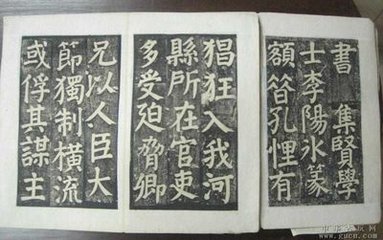 書 集賢學
士李陽氷篆
額 昔孔悝有
猖狂入我河
縣所在官吏
多受迫脅卿
兄以人臣大
節獨制橫流
或俘其謀主
www.gucn.com